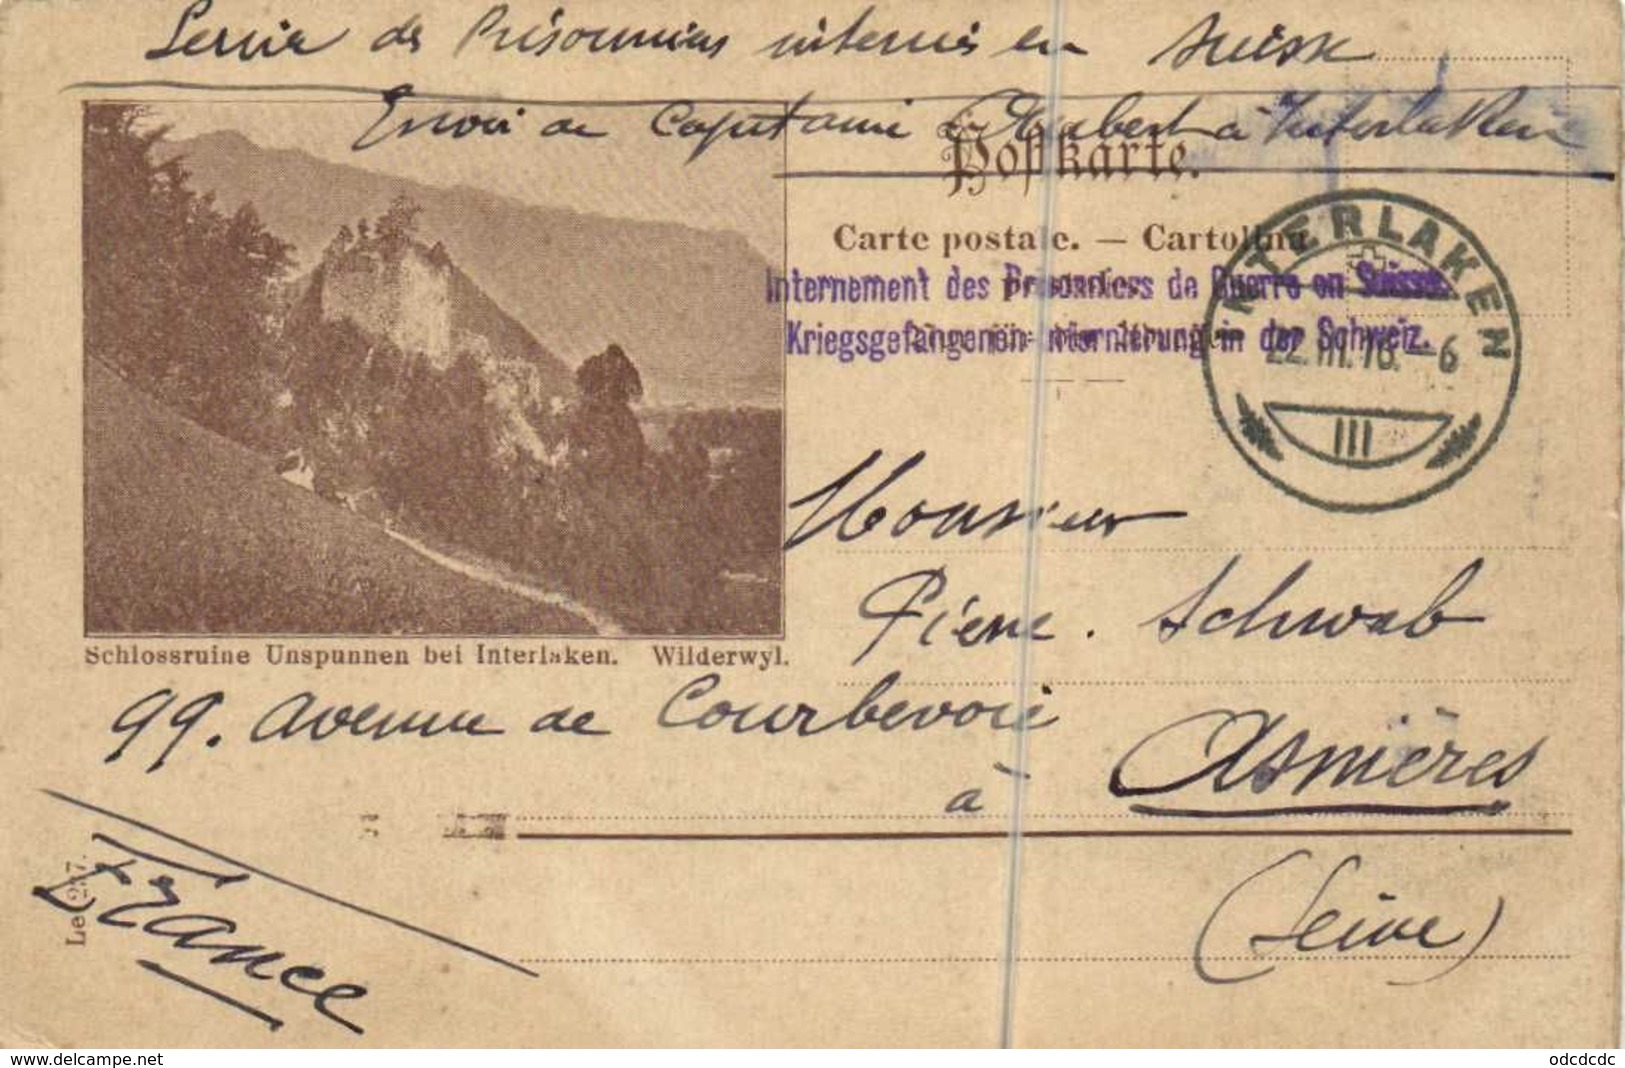 Service de Prisonniers internés en Suisse
Envoi de Capitaine Hubert à Interlaken
Postkarte.
Carte postale. — Cartolina
Internement des Prisonniers de Guerre en Suisse.
Kriegsgefangenen-Internierung in der Schweiz.
INTERLAKEN
22.III.16.–6
III
Schlossruine Unspunnen bei Interlaken. Wilderwyl.
Monsieur
Pierre. Schwab
99. avenue de Courbevoie
à Asnières
(Seine)
France
Le 237.
www.delcampe.net
odcdcdc